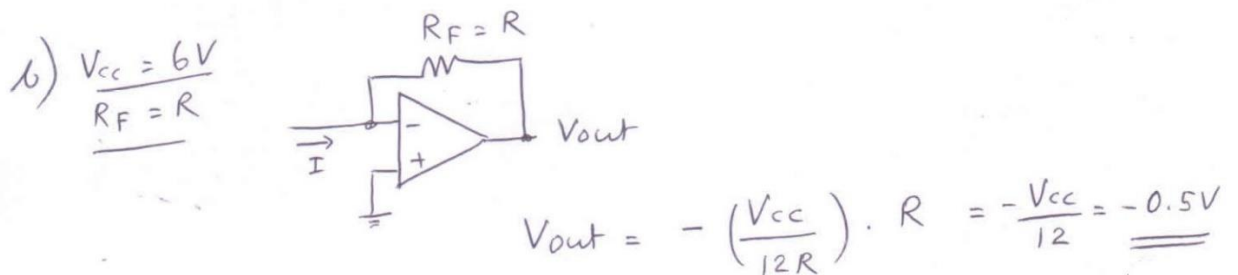 b) Vcc = 6V
RF = R
RF = R
-
+
I
Vout
Vout = - (Vcc / 12R) . R = -Vcc / 12 = -0.5V